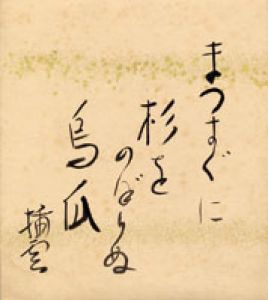 まつすぐに
杉を
のぼりぬ
烏瓜
播雲